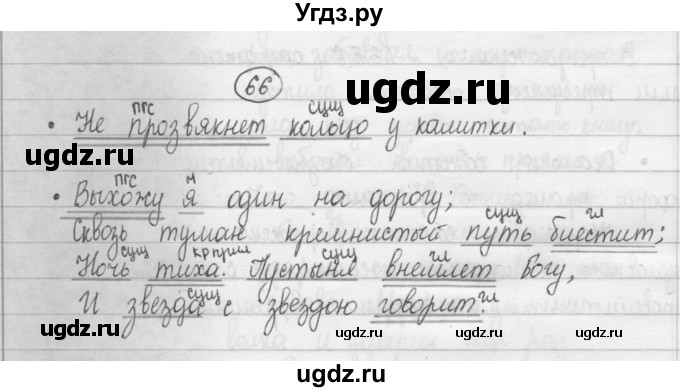 Угдз.ру
66
пгс сущ
• Не прозвякнет кольцо у калитки.
пгс м
• Выхожу я один на дорогу;
сущ гл
Сквозь туман кремнистый путь блестит;
сущ кр прил сущ гл
Ночь тиха. Пустыня внемлет Богу,
сущ гл
И звезда с звездою говорит.
ugdz.ru ugdz.ru ugdz.ru
ugdz.ru ugdz.ru
ugdz.ru ugdz.ru ugdz.ru
ugdz.ru ugdz.ru ugdz.ru ugdz.ru